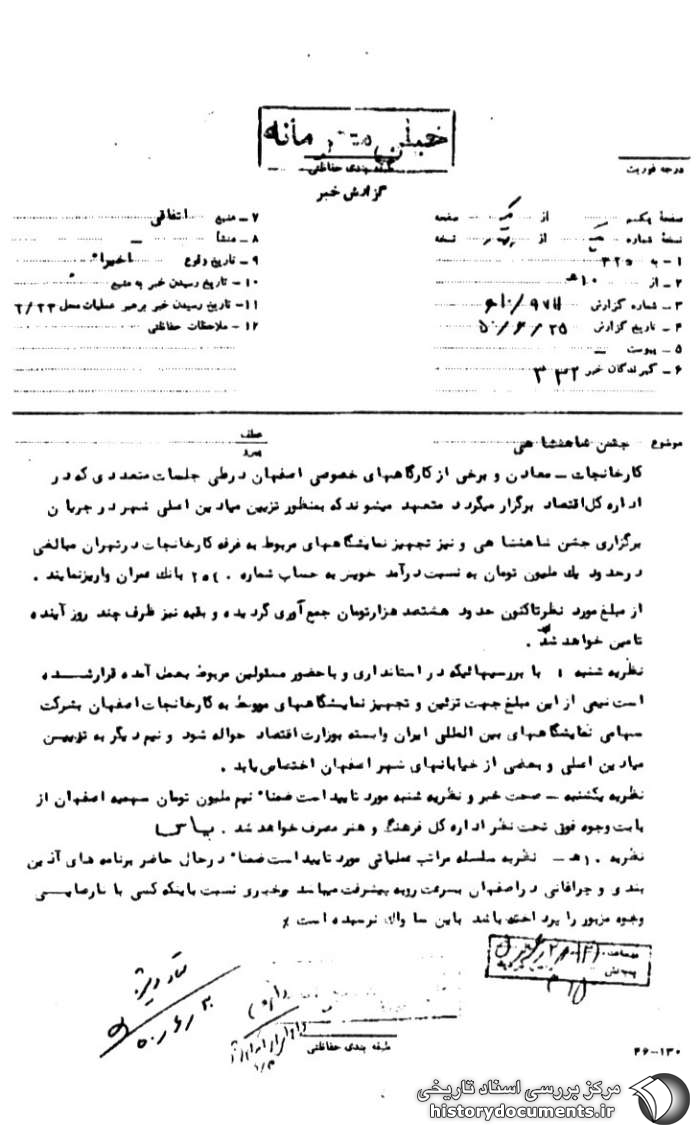 خیلی محرمانه
طبقه بندی حفاظتی
گزارش خبر
درجه فوریت
صفحه یکم از صفحه
نسخه شماره از نسخه
۱ – به ۳۲۵
۲ – از ۱۰ هـ
۳ – شماره گزارش
۴ – تاریخ گزارش ۵۰/۶/۲۵
۵ – پیوست –
۶ – گیرندگان خبر ۳۳۲
۷ – منبع اتفاقی
۸ – منشأ –
۹ – تاریخ وقوع اخیرا"
۱۰ – تاریخ رسیدن خبر به منبع
۱۱ – تاریخ رسیدن خبر برهبر عملیات محل ۲/۲۳
۱۲ – ملاحظات حفاظتی
موضوع جشن شاهنشاهی
عطف
پیرو
کارخانجات – معادن و برخی از کارگاههای خصوصی اصفهان درطی جلسات متعددی که در
اداره کل اقتصاد برگزار میگردد متعهد میشوند که بمنظور تزیین میادین اصلی شهر در جریان
برگزاری جشن شاهنشاهی و نیز تجهیز نمایشگاههای مربوط به غرفه کارخانجات درتهران مبالغی
درحدود یک ملیون تومان به نسبت درآمد خویش به حساب شماره ۲۵۴۰ بانک عمران واریزنمایند .
از مبلغ مورد نظرتاکنون حدود هشتصد هزارتومان جمع آوری گردیده و بقیه نیز ظرف چند روز آینده
تامین خواهد شد .
نظریه شنبه با بررسیهائیکه در استانداری و باحضور مسئولین مربوط بعمل آمده قرارشده
است نیمی از این مبلغ جهت تزئین و تجهیز نمایشگاههای مربوط به کارخانجات اصفهان بشرکت
سهامی نمایشگاههای بین المللی ایران وابسته بوزارت اقتصاد حواله شود و نیم دیگر به تزیین
میادین اصلی و بعضی از خیابانهای شهر اصفهان اختصاص یابد .
نظریه یکشنبه – صحت خبر و نظریه شنبه مورد تایید است ضمنا" نیم ملیون تومان سهمیه اصفهان از
بابت وجوه فوق تحت نظر اداره کل فرهنگ و هنر مصرف خواهد شد .
نظریه ۱۰ هـ – نظریه سلسله مراتب عملیاتی مورد تایید است ضمنا" درحال حاضر برنامه های آذین
بندی و چراغانی دراصفهان بسرعت روبه پیشرفت میباشد وخبری نسبت باینکه کسی با نارضایتی
وجوه مزبور را پرداخته باشد باین ساواک نرسیده است ٪
ستاد ویژه
طبقه بندی حفاظتی
۴۶–۱۳۰
مرکز بررسی اسناد تاریخی
historydocuments.ir